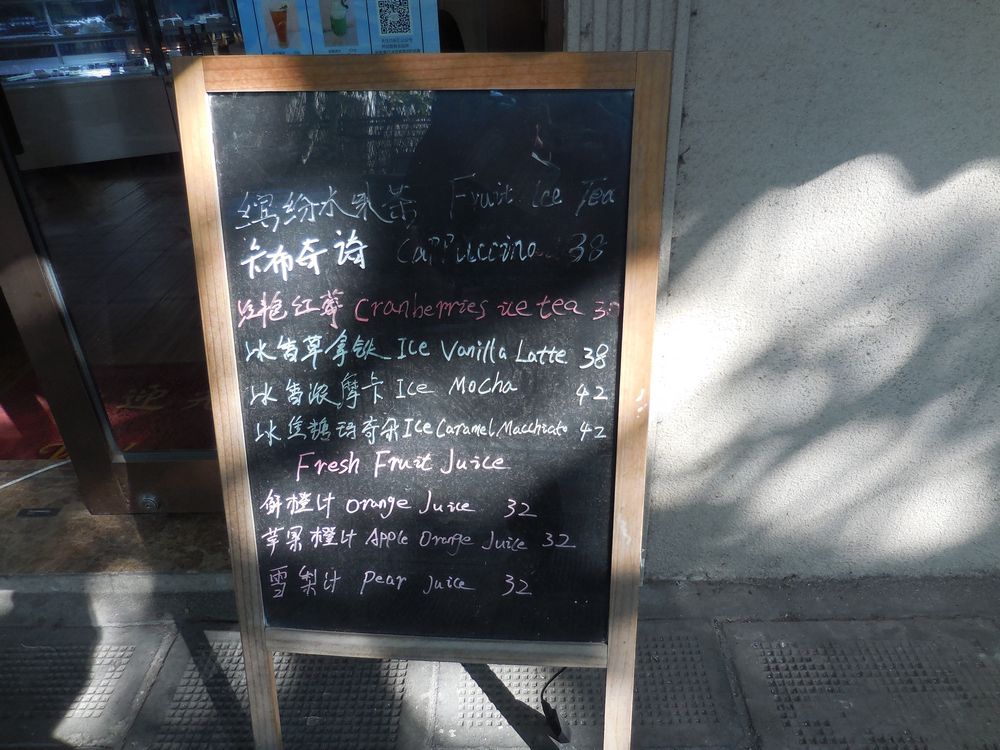 缤纷水果茶 Fruit Ice Tea
卡布奇诺 Cappuccino 38
红莓 Cranberries ice tea
冰香草拿铁 Ice Vanilla Latte 38
冰香浓摩卡 Ice Mocha 42
冰焦糖玛奇朵 Ice Caramel Macchiato 42
Fresh Fruit Juice
鲜橙汁 Orange Juice 32
苹果橙汁 Apple Orange Juice 32
雪梨汁 Pear Juice 32